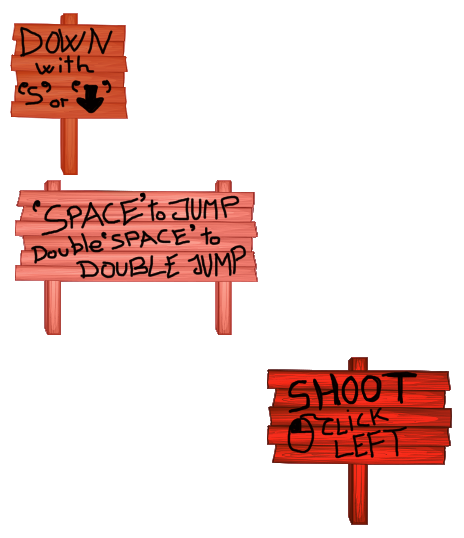 DOWN
with
"S" or "⬇"
'SPACE' to JUMP
Double 'SPACE' to
DOUBLE JUMP
SHOOT
CLICK
LEFT